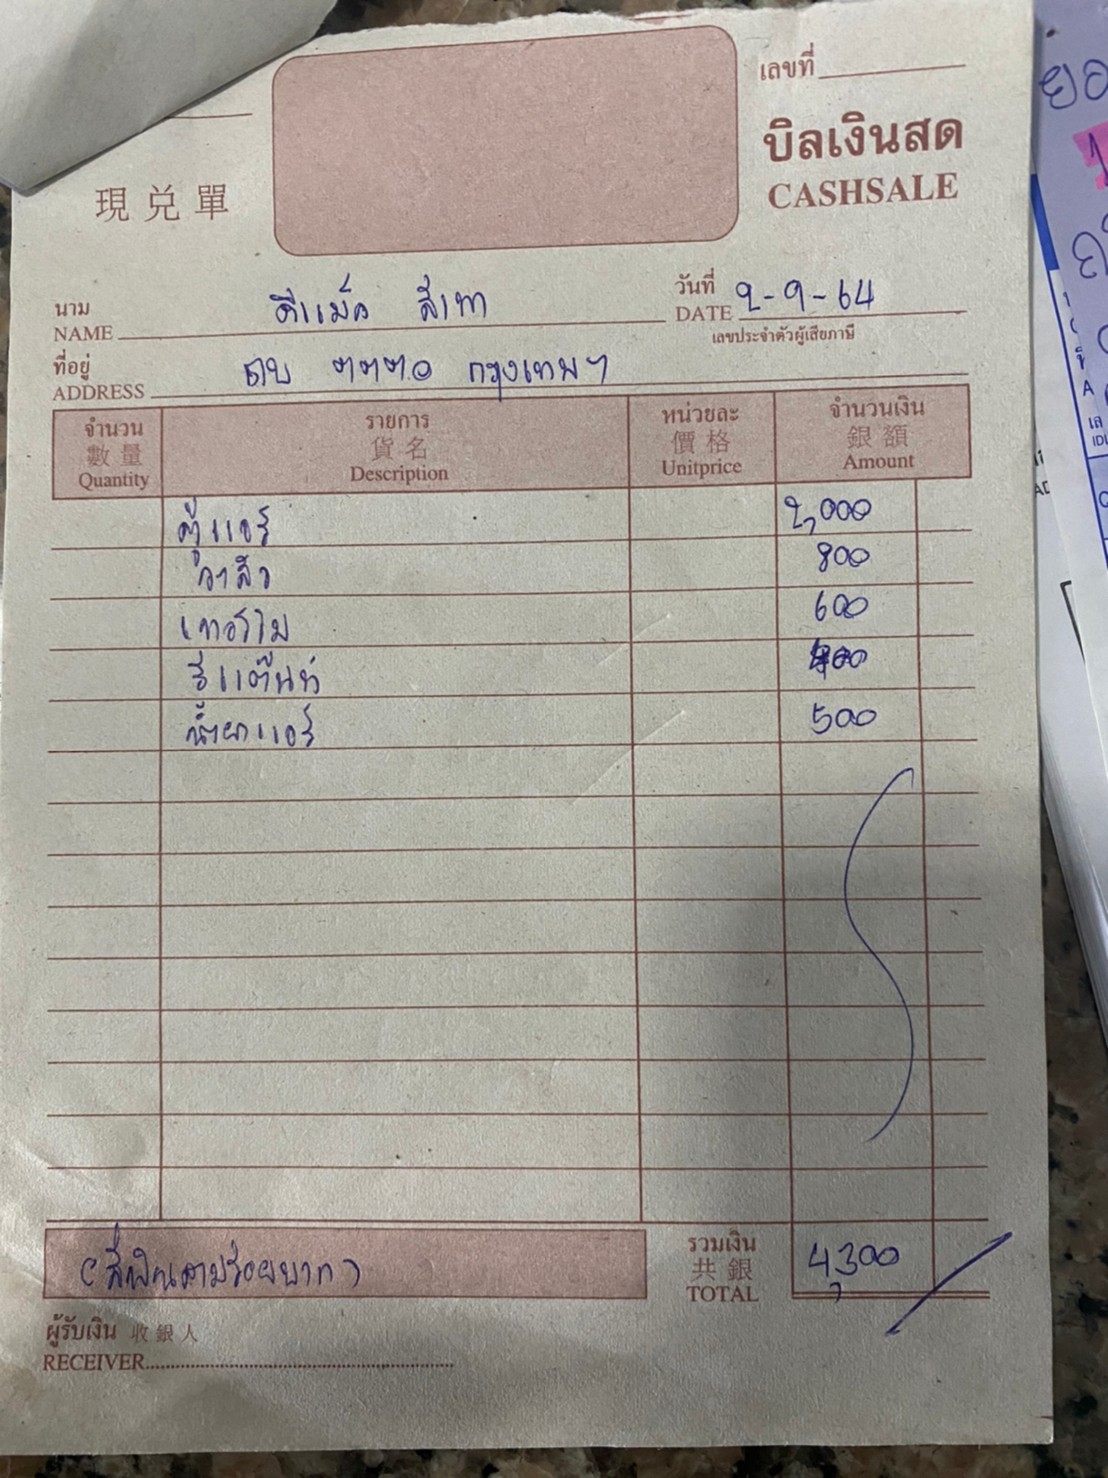 เลขที่
บิลเงินสด
現兌單
CASHSALE
นาม
NAME
ดีแม็ค สีเทา
วันที่
DATE
2-9-64
เลขประจำตัวผู้เสียภาษี
ที่อยู่
ADDRESS
ฒบ ๓๓๓๐ กรุงเทพฯ
จำนวน รายการ หน่วยละ จำนวนเงิน
數量 貨名 價格 銀額
Quantity Description Unitprice Amount
ตู้แอร์ 2,000
วาล์ว 800
เทอร์โม 600
รีแต๊นท์ 400
น้ำยาแอร์ 500
(สี่พันสามร้อยบาท)
รวมเงิน
共銀
TOTAL
4,300
ผู้รับเงิน 收銀人
RECEIVER